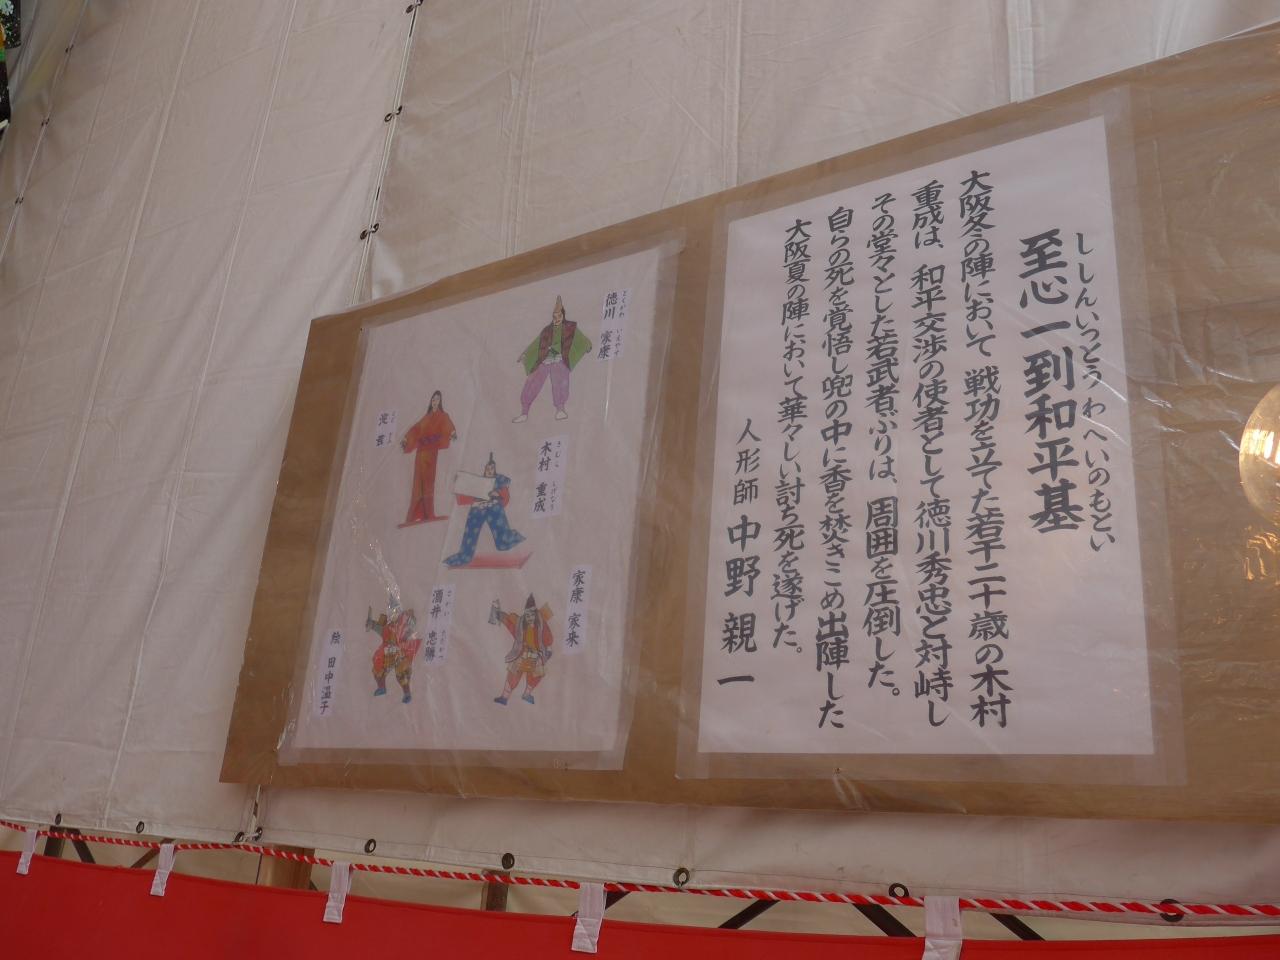 ししんいっとう わへいのもとい
至心一到和平基
大阪冬の陣において 戦功を立てた若干二十歳の木村
重成は、和平交渉の使者として徳川秀忠と対峙し
その堂々とした若武者ぶりは、周囲を圧倒した。
自らの死を覚悟し兜の中に香を焚きこめ出陣した
大阪夏の陣において華々しい討ち死を遂げた。
人形師 中野 親一
とくがわ いえやす
徳川 家康
きむら しげなり
木村 重成
家康 家来
よど ぎみ
淀 君
さかい ただかつ
酒井 忠勝
絵 田中温子